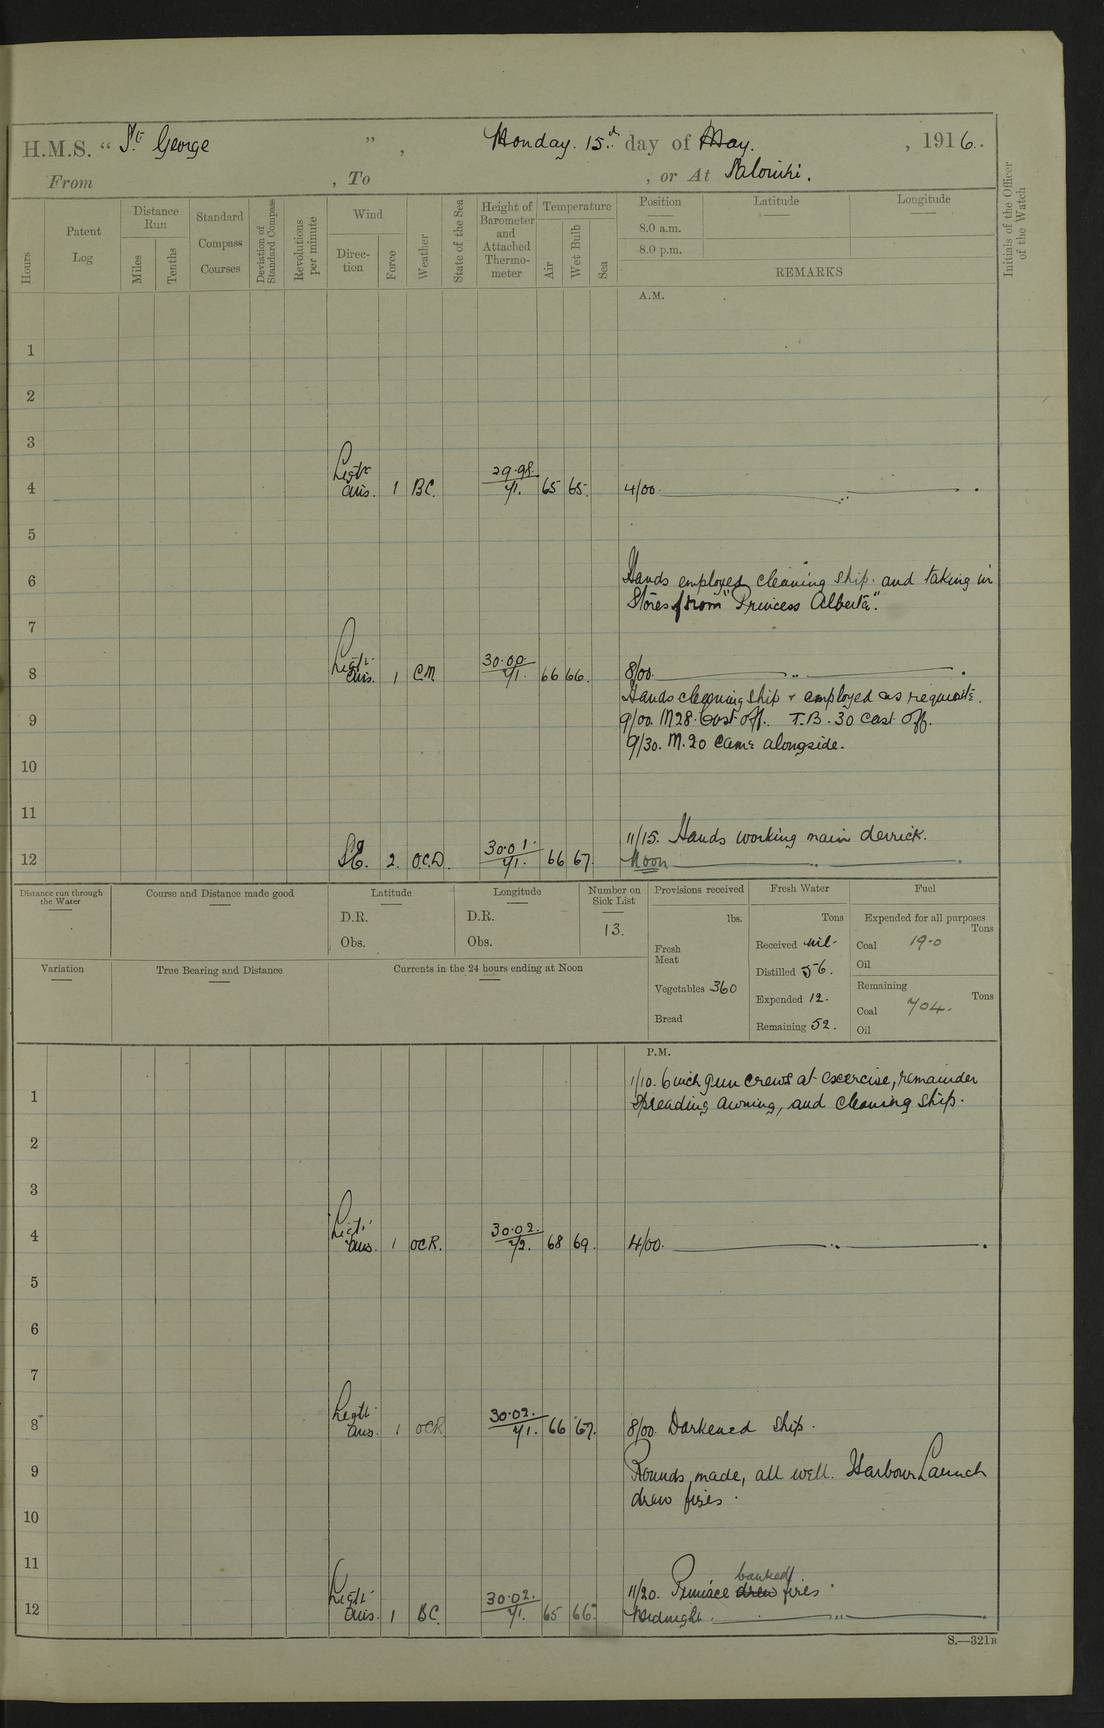 H.M.S. “ St. George ” , Monday. 15.d day of May. , 1916..
From , To , or At Saloniki.
Hours
Patent Log
Distance Run
Miles
Tenths
Standard Compass Courses
Deviation of Standard Compass
Revolutions per minute
Wind
Direction
Force
Weather
State of the Sea
Height of Barometer and Attached Thermometer
Temperature
Air
Wet Bulb
Sea
Position
8.0 a.m.
8.0 p.m.
Latitude
Longitude
REMARKS
Initials of the Officer of the Watch
A.M.
1
2
3
4 Light airs. 1 BC. 29.98. 71. 65 65. 4/00.
5
6 Hands employed cleaning ship. and taking in
Stores from "Princess Alberta".
7
8 Light airs. 1 CM 30.00 71. 66 66. 8/00.
Hands cleaning ship + employed as requisite.
9 9/00. M28. Cast off. T.B. 30 cast off.
9/30. M.20 came alongside.
10
11
11/15. Hands working main derrick.
12 SE. 2. O.C.D. 30.01. 71. 66 67. Noon
Distance run through the Water
Course and Distance made good
Latitude
D.R.
Obs.
Longitude
D.R.
Obs.
Number on Sick List
13.
Provisions received
lbs.
Fresh Meat
Vegetables 360
Bread
Fresh Water
Tons
Received nil.
Distilled 56.
Expended 12.
Remaining 52.
Fuel
Expended for all purposes
Tons
Coal 19.0
Oil
Remaining
Tons
Coal 704.
Oil
Variation
True Bearing and Distance
Currents in the 24 hours ending at Noon
P.M.
1/10. 6 inch gun crews at exercise, remainder
1 spreading awning, and cleaning ship.
2
3
4 Light airs. 1 OCR. 30.02. 72. 68 69. 4/00.
5
6
7
8 Light airs. 1 OCR 30.02. 71. 66 67. 8/00. Darkened ship.
9 Rounds made, all well. Harbour Launch
drew fires.
10
11
banked
11/20. Pinnace drew fires.
12 Light airs. 1 BC. 30.02. 71. 65 66. Midnight.
S.—321B